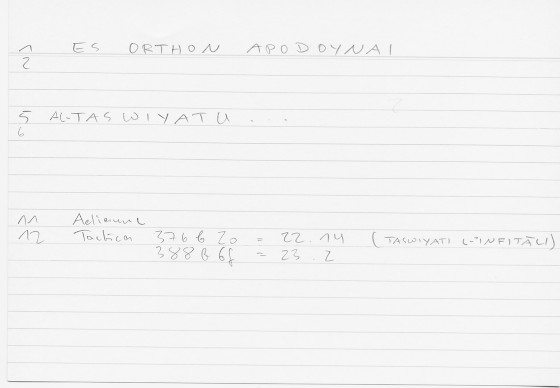 1 ES ORTHON APODOYNAI
2
5 AL-TASWIYATU . . .
6
11 Aelianus
12 Tactica 376 b 20 = 22.14 (TASWIYATI L-'INFITĀLI)
388 b 6f = 23.2